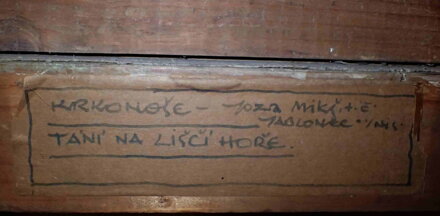 KRKONOŠE - Joza Mikš, t.č.
JABLONEC n/NIS.
TÁNÍ NA LIŠČÍ HOŘE.